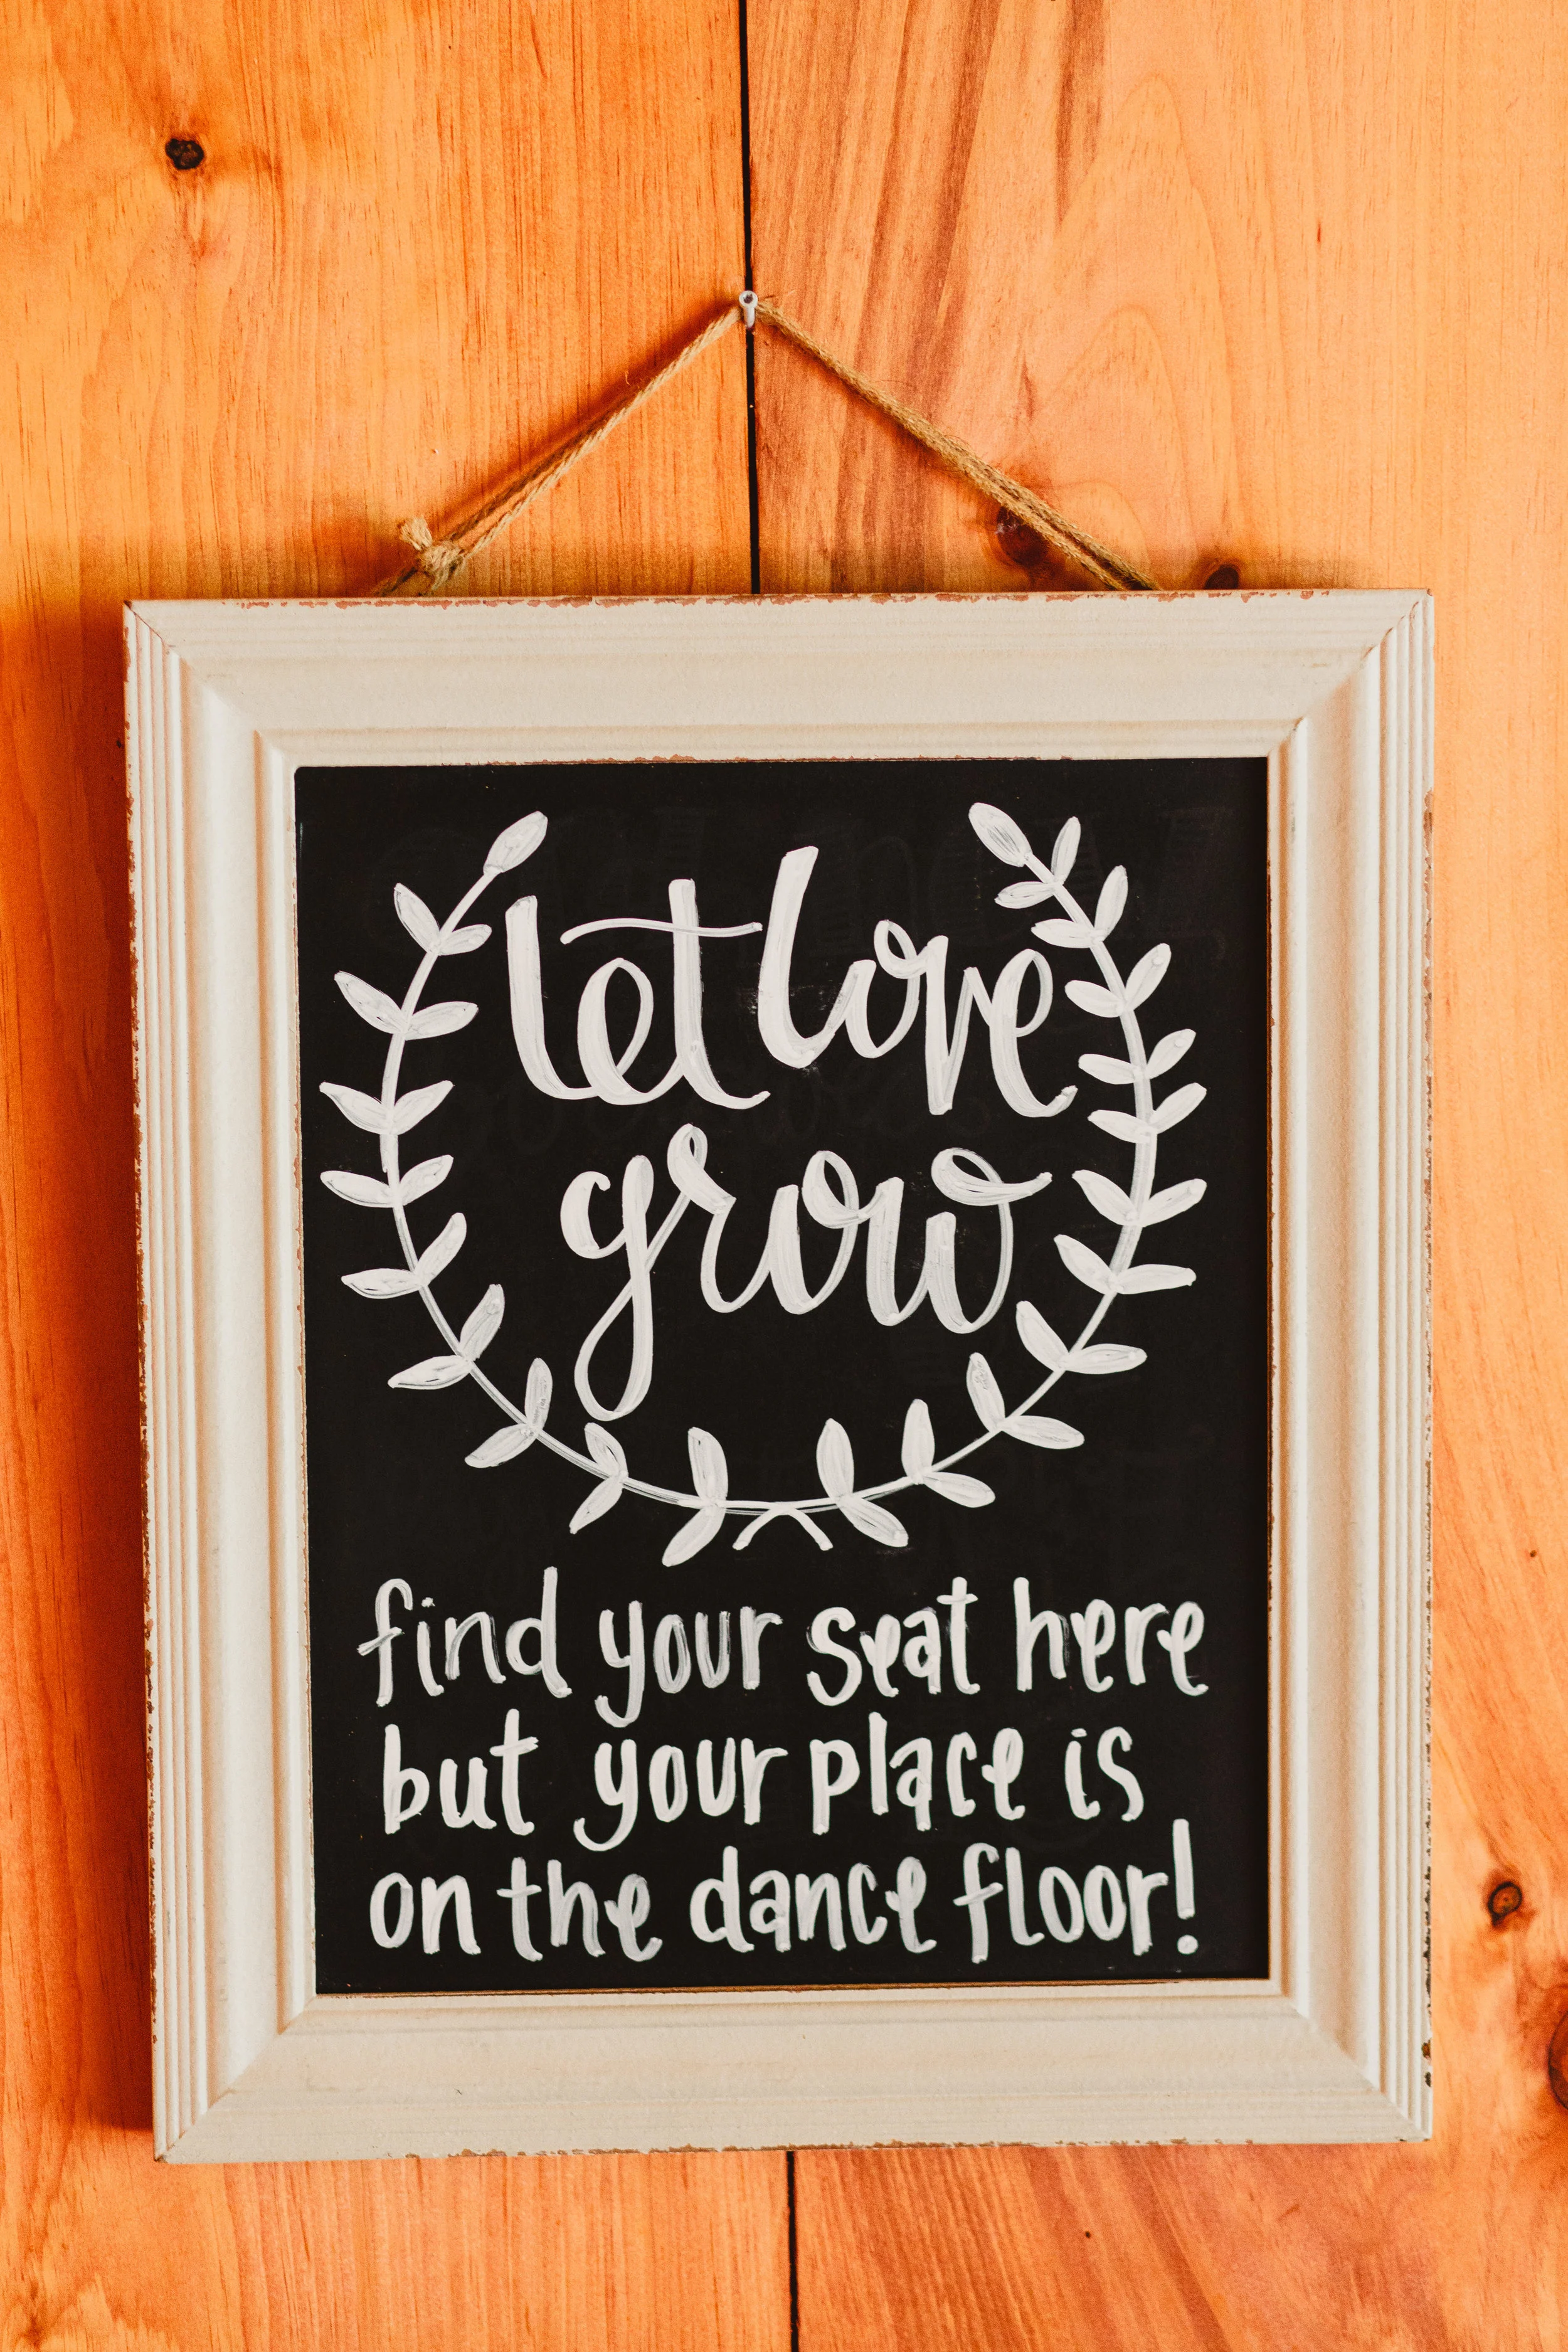 let love
grow
find your seat here
but your place is
on the dance floor!